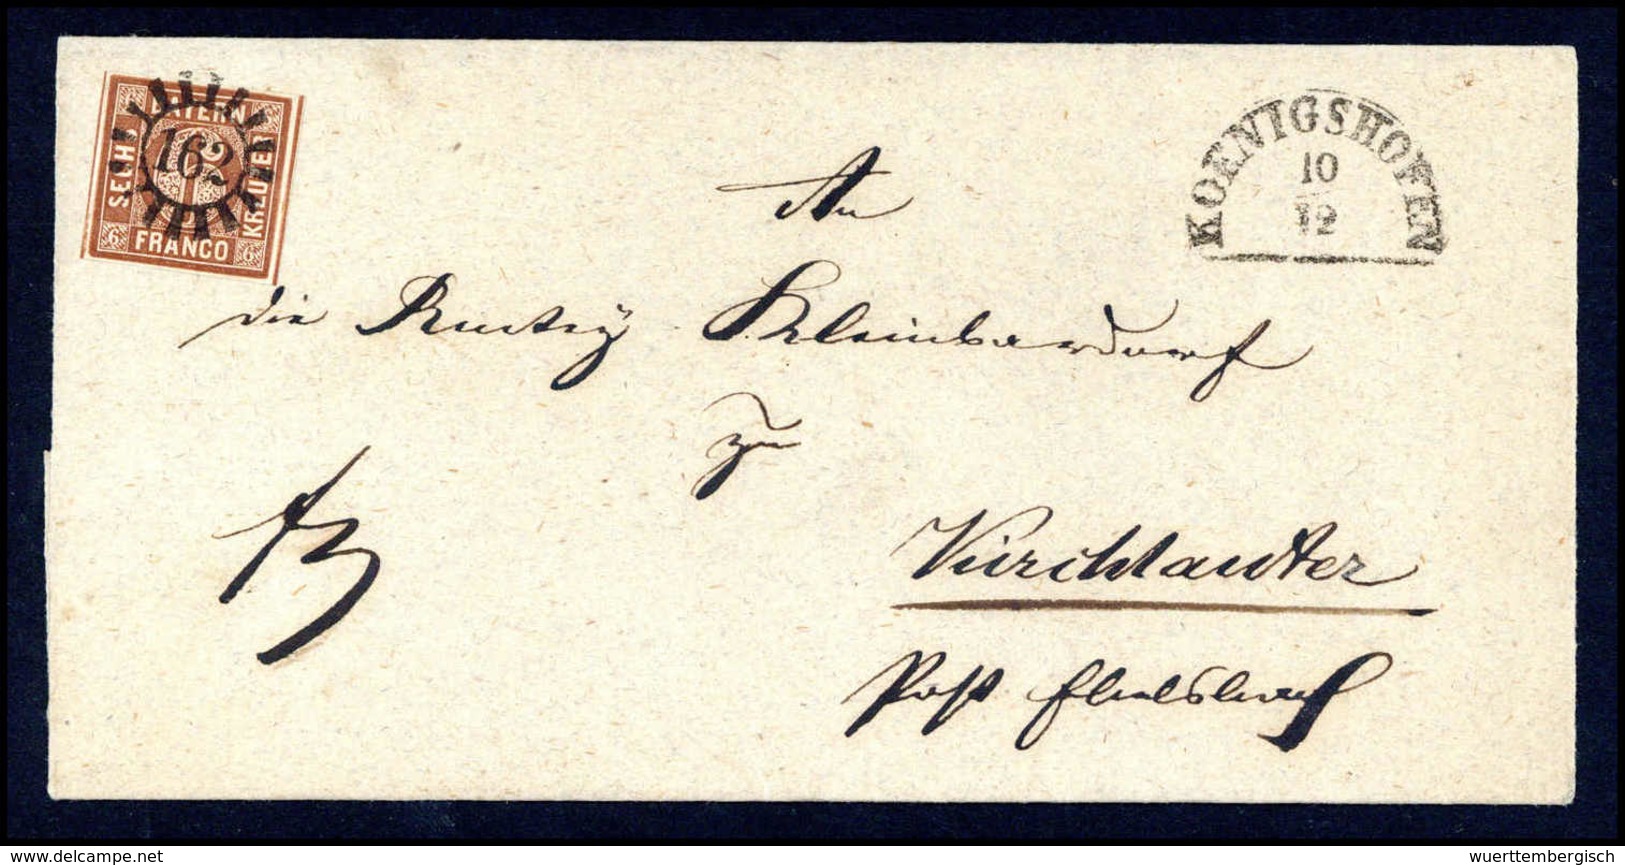 BAYERN
SECHS
KREUZER
FRANCO
6 6
162
KOENIGSHOFEN
10
12
An
die Rentey Kleinbardorf
zu
Kirchlauter
Post
delcampe.net
wuerttembergisch